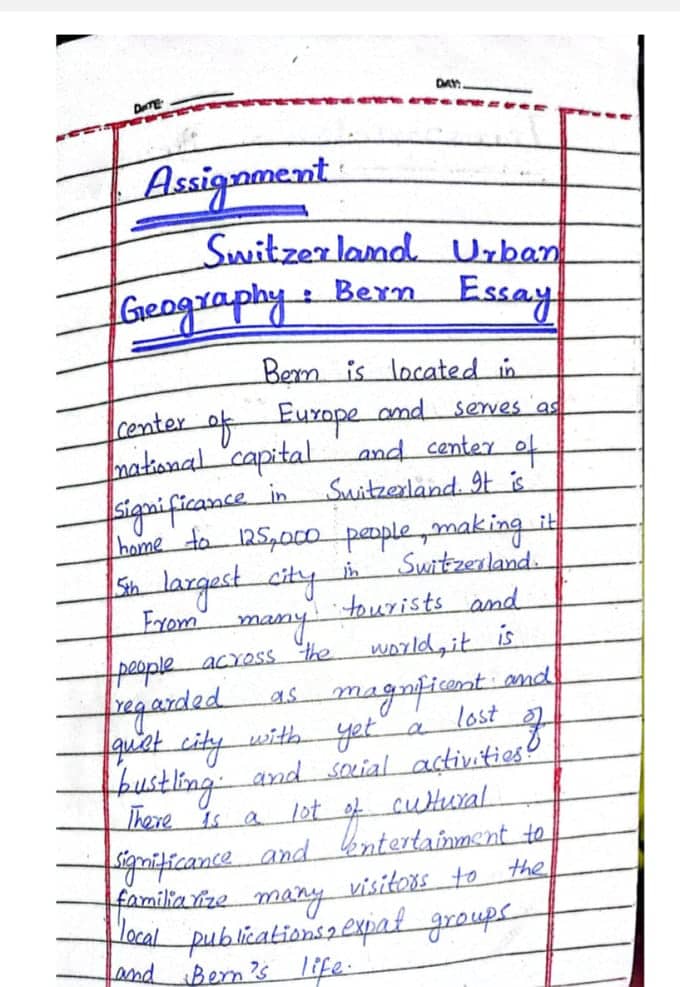 DATE:
DAY:
Assignment :
Switzerland Urban
Geography : Bern Essay
Bern is located in
center of Europe and serves as
national capital and center of
significance in Switzerland. It is
home to 125,000 people, making it
5th largest city in Switzerland.
From many tourists and
people across the world, it is
regarded as magnificent and
quet city with yet a lost of
bustling and social activities.
There is a lot of cultural
significance and entertainment to
familiarize many visitors to the
local publications, expat groups
and Bern's life.